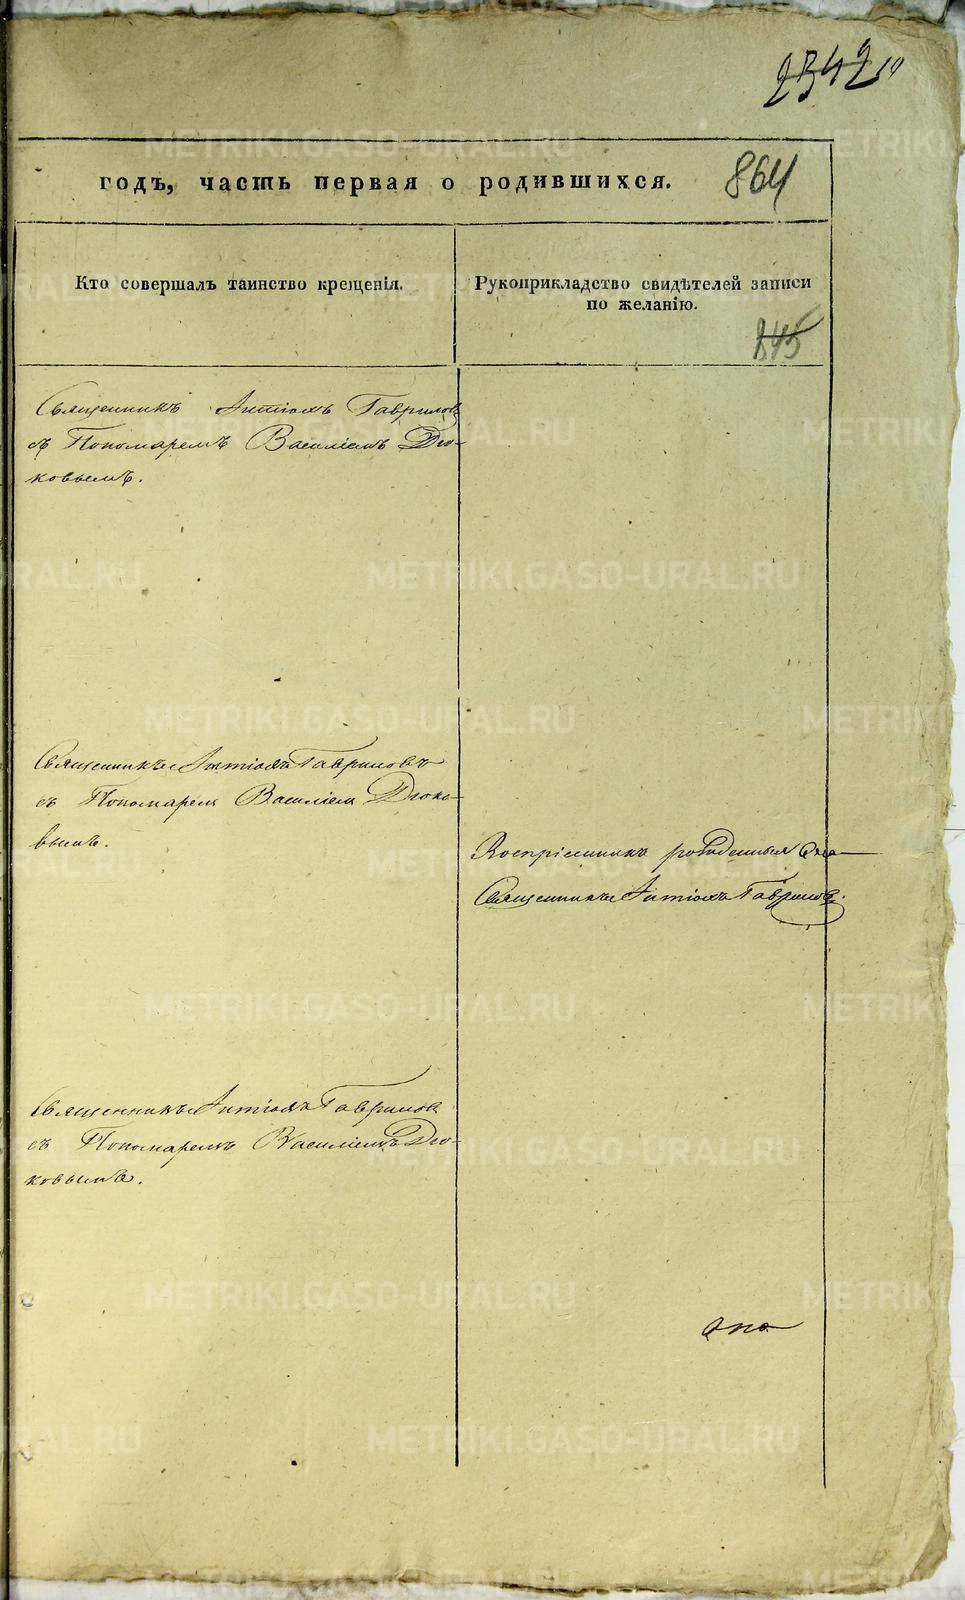 864
годъ, часть первая о родившихся.
Кто совершалъ таинство крещенія.
Рукоприкладство свидѣтелей записи
по желанію.
845
Священникъ Гаврилов
съ Пономаремъ Василіемъ Дюковымъ.
Священникъ Гавриловъ
съ Пономаремъ Василіем Дюковымъ.
Воспріемникъ
Священникъ Гаврилов.
Священникъ Гаврилов
съ Пономаремъ Василіемъ Дюковымъ.
METRIKI.GASO-URAL.RU